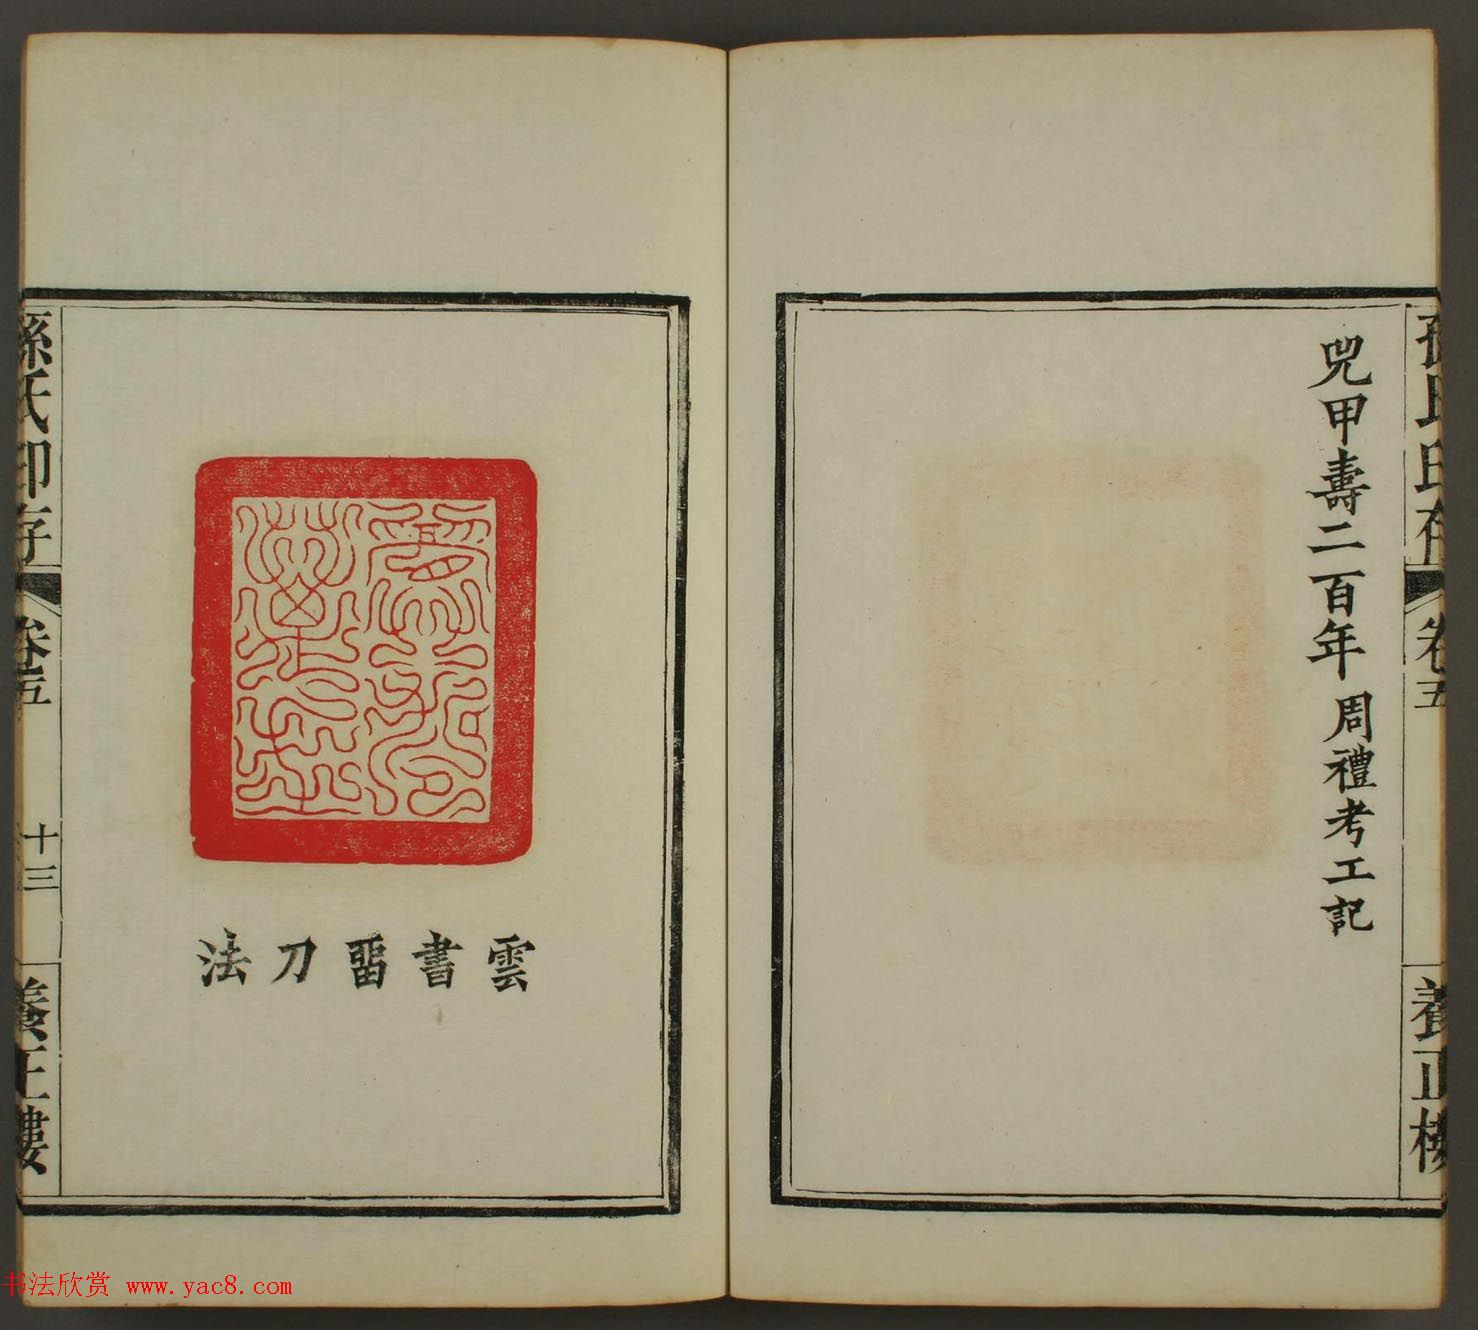 孫氏印存
卷五
養正樓
兕甲壽二百年 周禮考工記
雲書畱刀法
孫氏印存
卷五
十三
養正樓
书法欣赏 www.yac8.com